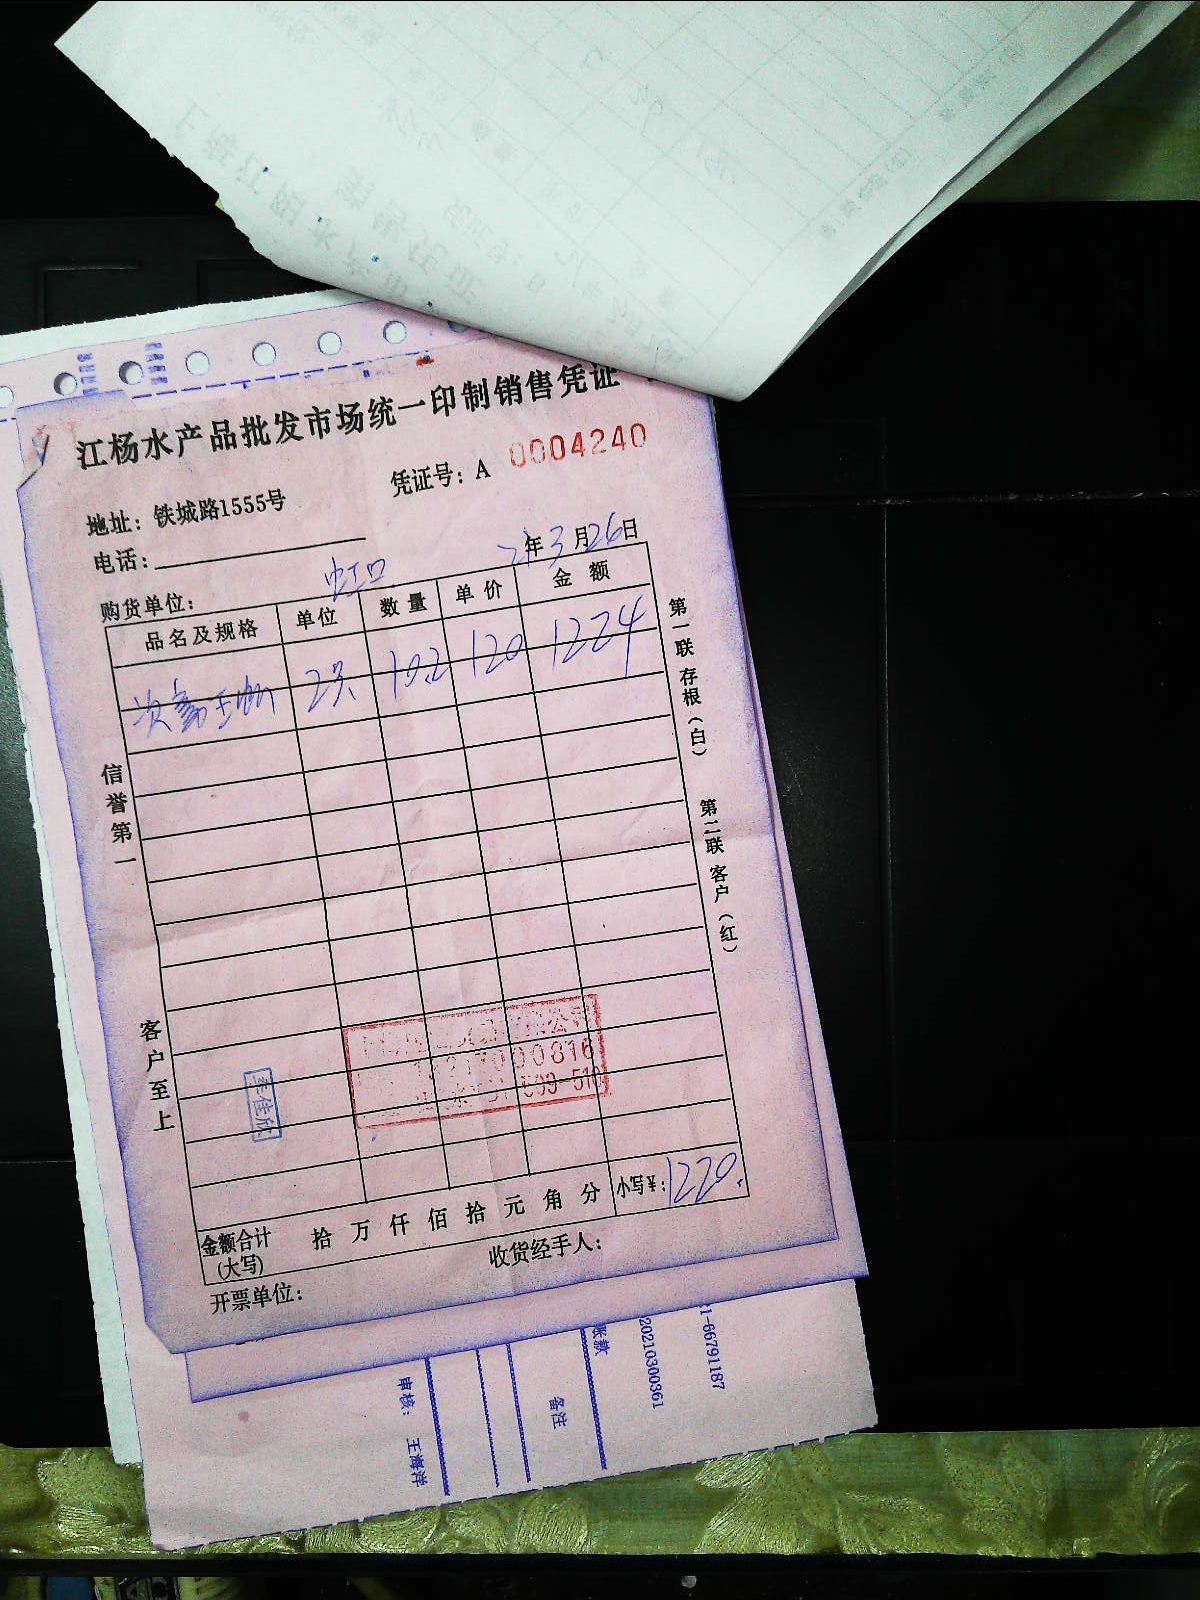 江杨水产品批发市场统一印制销售凭证
凭证号：A 0004240
地址：铁城路1555号
电话：
21年3月26日
购货单位： 虹口
品名及规格 单位 数量 单价 金额
2只 10.2 120 1224
第一联 存根（白）
第二联 客户（红）
信誉第一
客户至上
公司
000816
金额合计(大写) 拾 万 仟 佰 拾 元 角 分 小写¥：1220.
收货经手人：
开票单位：
账款
20210300361
1-66791187
备注
审核： 王海洋